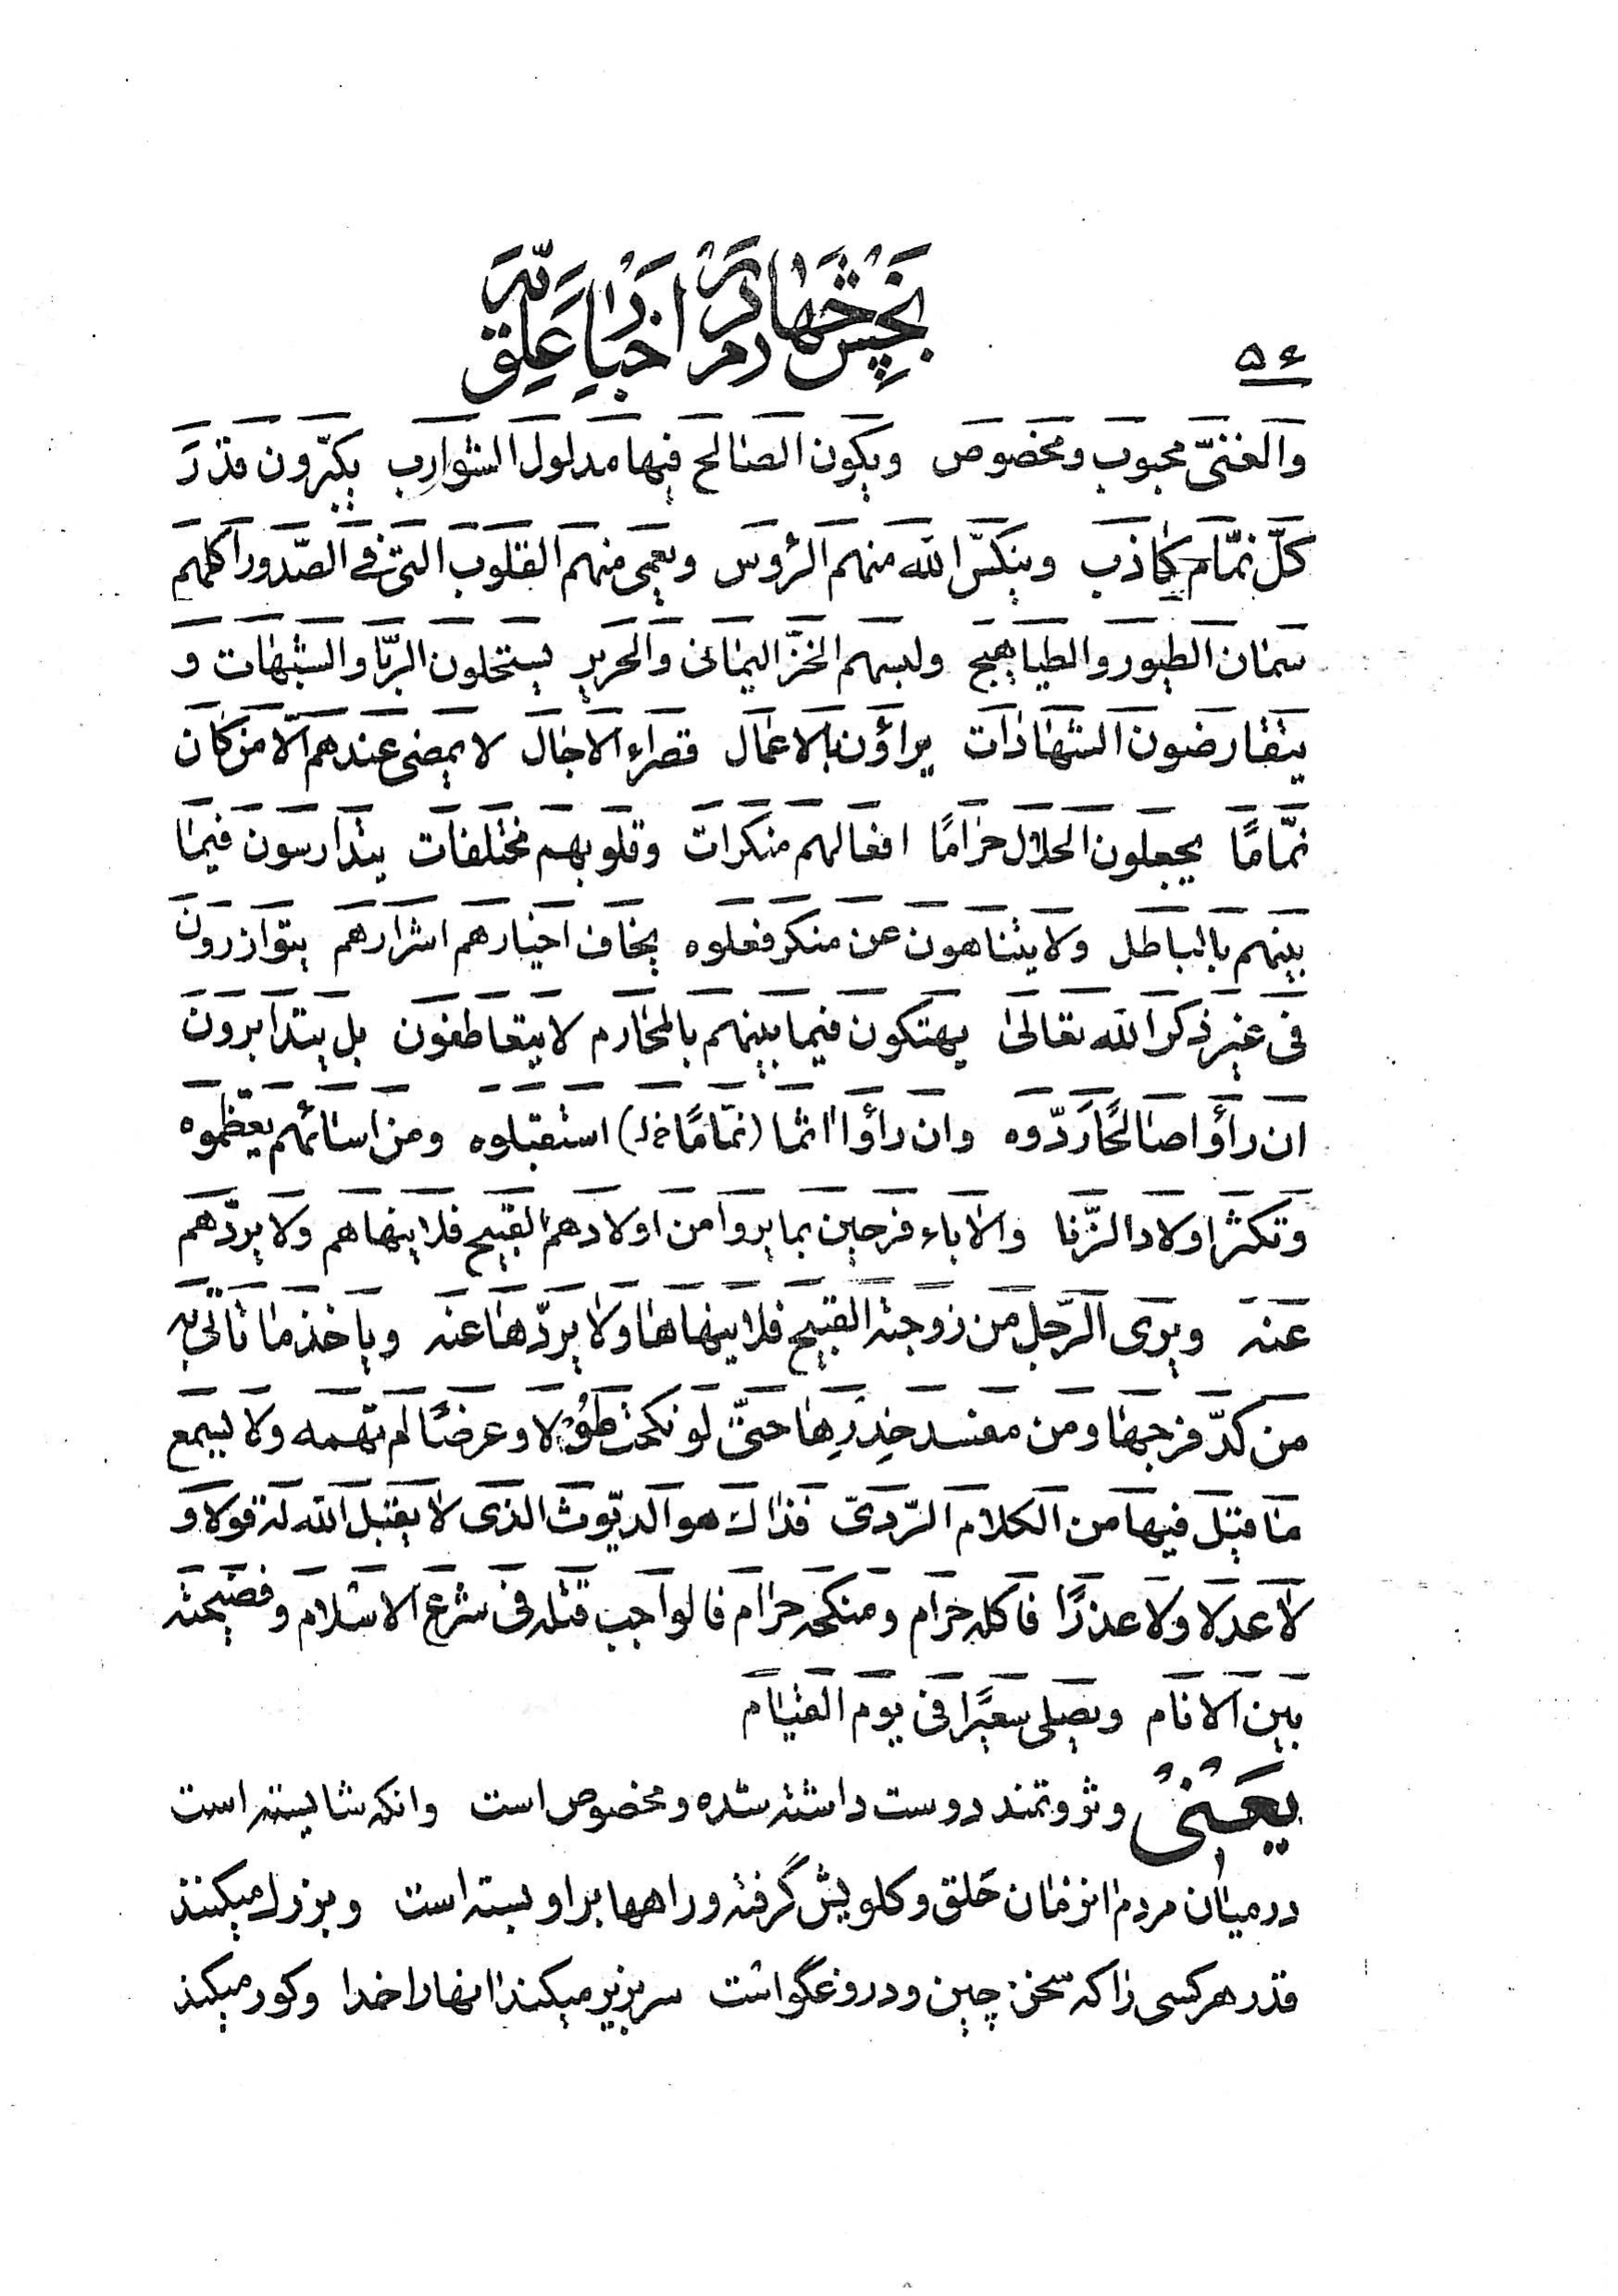 بخش چهارم در اخبار علویّه
۵۶
والغنیّ محبوب ومخصوص ویکون الصالح فیها مدلول الشوارب یکبّرون قدر
کلّ نمّام کاذب وینکّس الله منهم الرؤس ویعمی منهم القلوب التی فی الصّدور اکلهم
سمان الطیور والطیاهیج ولبسهم الخزّ الیمانی والحریر یستحلون الرّبا والشبهات و
یتقارضون الشهادات یراؤن بالاعمال قصراء الاجال لا یمضی عندهم الّا من کان
نمّامًا یجعلون الحلال حرامًا افعالهم منکرات وقلوبهم مختلفات یتدارسون فیما
بینهم بالباطل ولا یتناهون عن منکر فعلوه یخاف اخیارهم اشرارهم یتوازرون
فی غیر ذکر الله تعالی یهتکون فیما بینهم بالمحارم لا یتعاطفون بل یتدابرون
ان رأوا صالحًا ردّوه وان رأوا اثما (نمّامًا خ‌ل) استقبلوه ومن اسائهم یعظموه
وتکثر اولاد الزّنا والاباء فرحین بما یروا من اولادهم القبیح فلا ینهاهم ولا یردّهم
عنه ویری الرّجل من زوجته القبیح فلا ینهاها ولا یردّها عنه ویاخذ ما تاتی به
من کدّ فرجها ومن مفسد خدرها حتّی لو نکحت طولا وعرضًا لم تهمه ولا یسمع
ما قیل فیها من الکلام الرّدیّ فذاک هو الدیّوث الذی لا یقبل الله له قولا و
لا عدلا ولا عذرًا فاکله حرام ومنکحه حرام فالواجب قتله فی شرع الاسلام وفضیحته
بین الانام ویصلی سعیرًا فی یوم القیام
یعنی وثروتمند دوست داشته شده ومخصوص است وانکه شایسته است
درمیان مردم انزمان حلق وکلویش گرفته وراهها بر او بسته است وبزرک میکنند
قدر هرکسی را که سخن چین ودروغگو است سربزیر میکند انهارا خدا وکور میکند